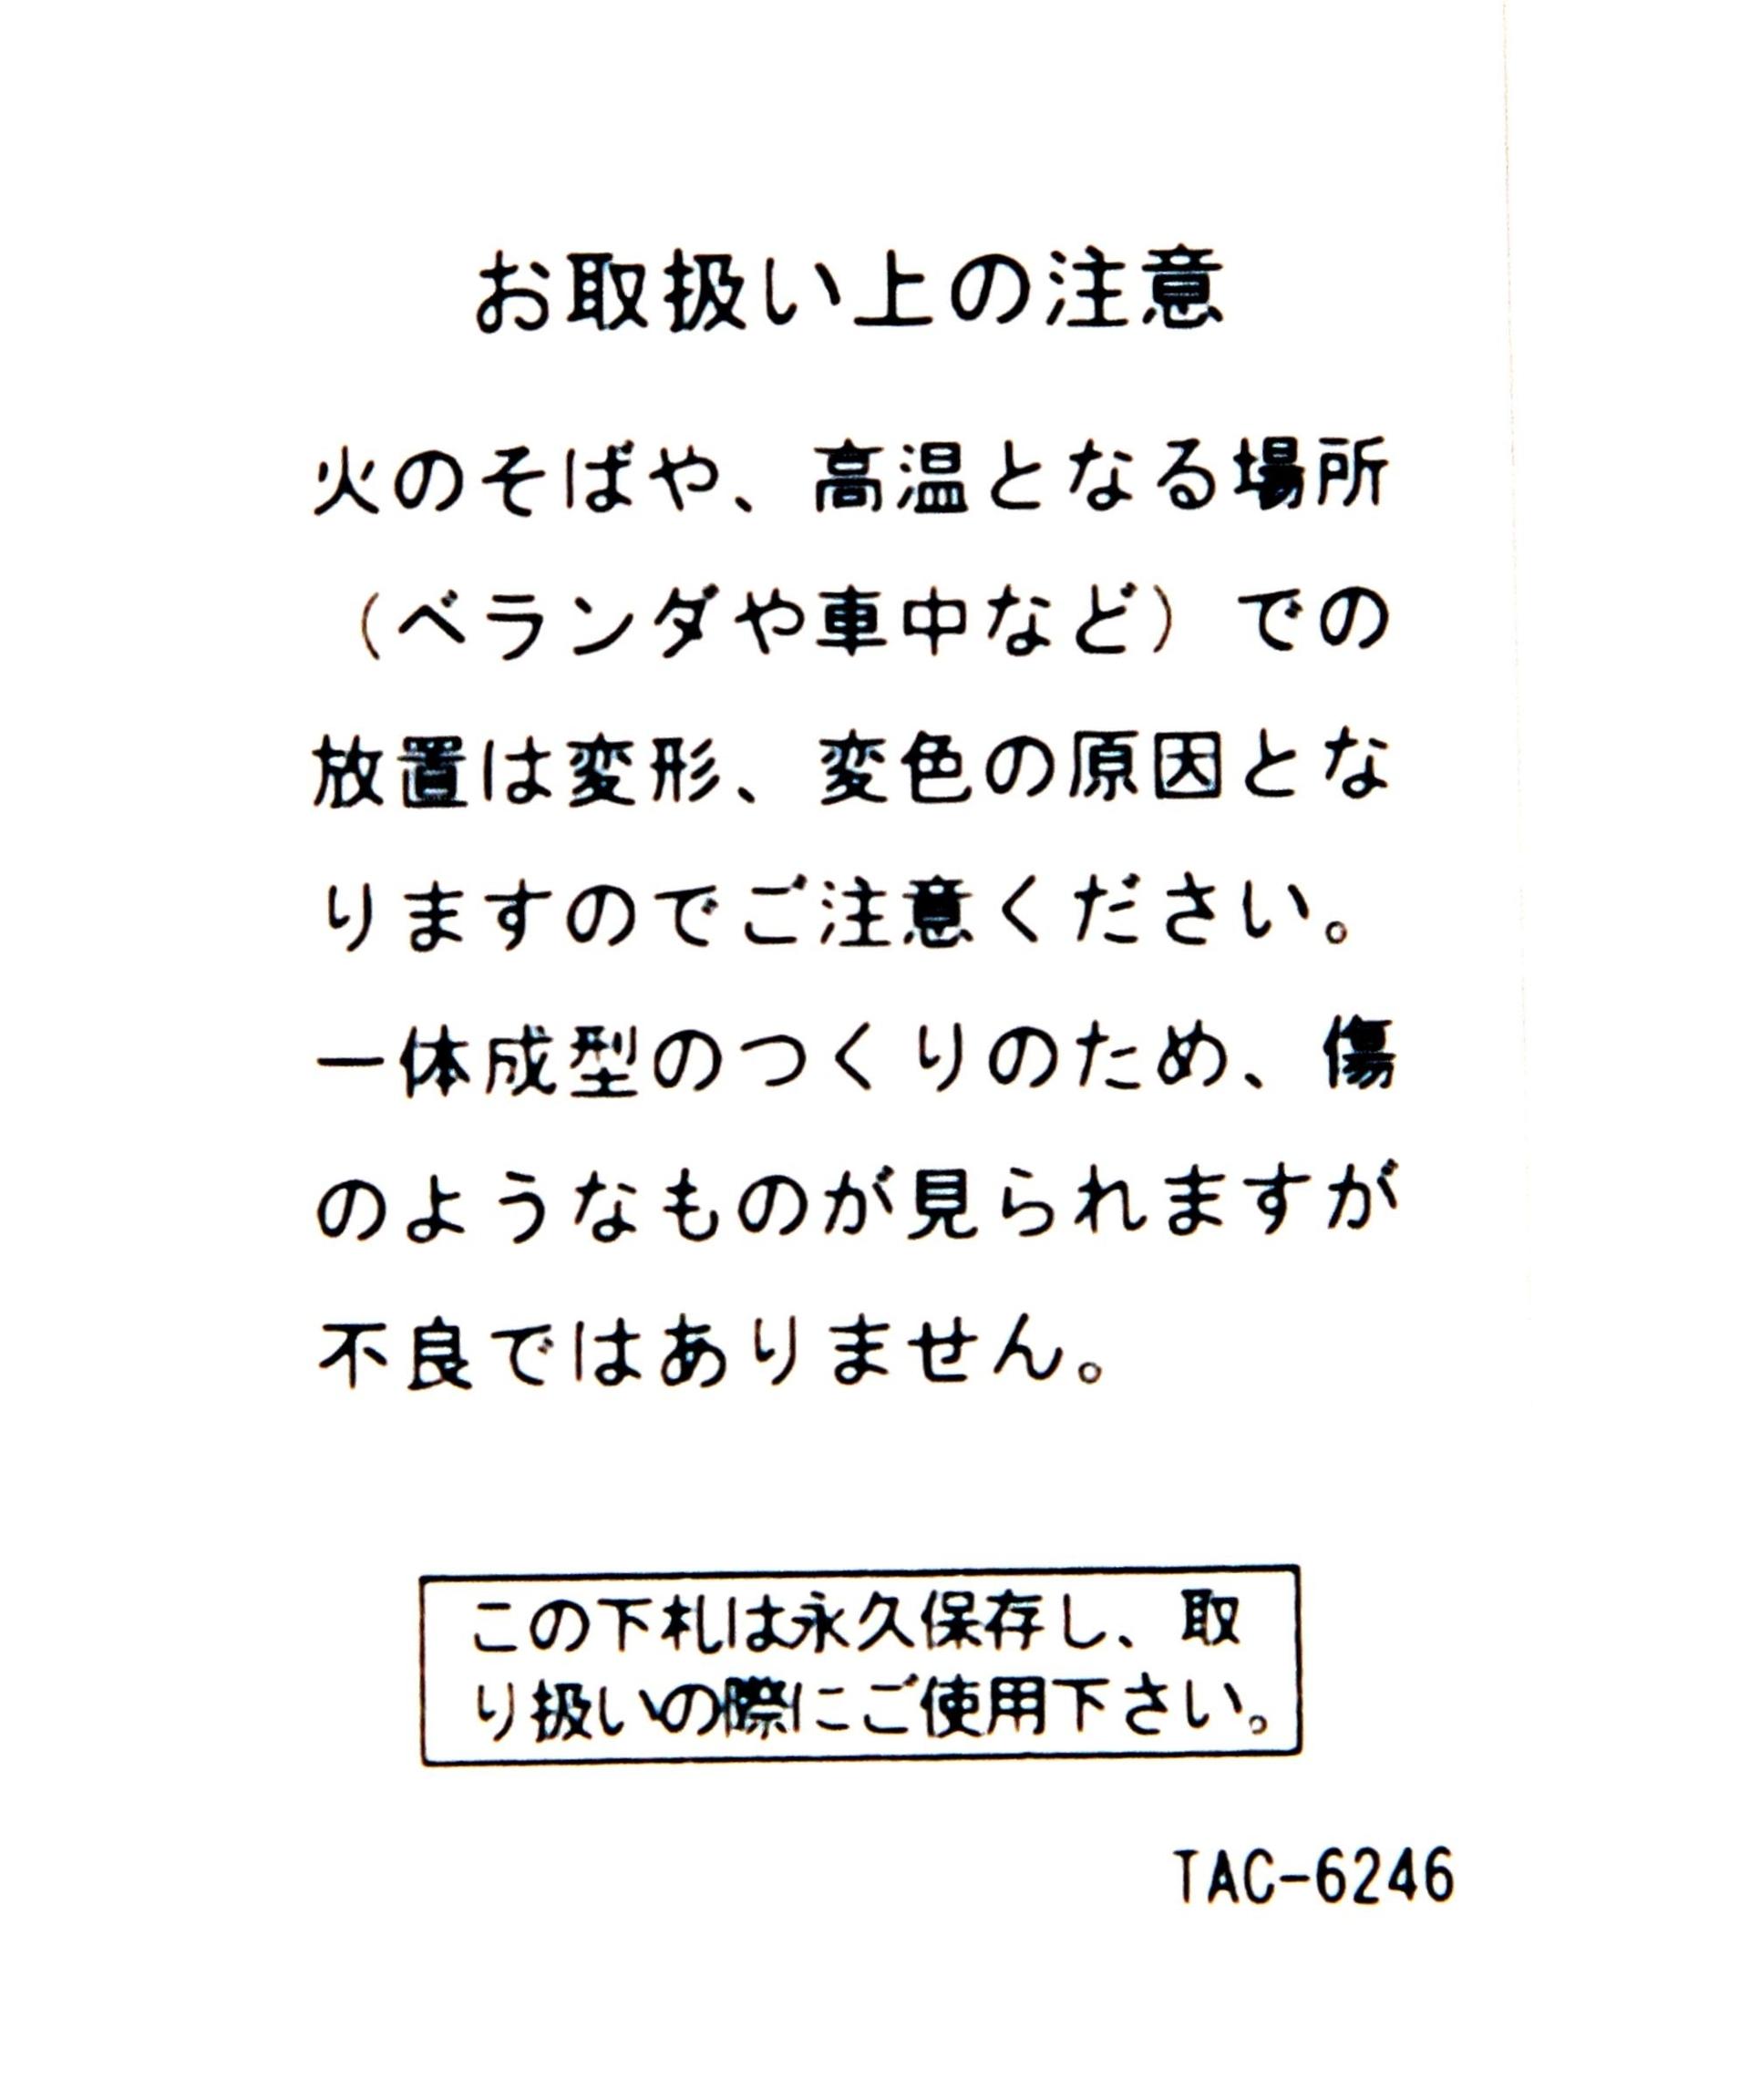 お取扱い上の注意
火のそばや、高温となる場所
（ベランダや車中など）での
放置は変形、変色の原因とな
りますのでご注意ください。
一体成型のつくりのため、傷
のようなものが見られますが
不良ではありません。
この下札は永久保存し、取
り扱いの際にご使用下さい。
TAC-6246